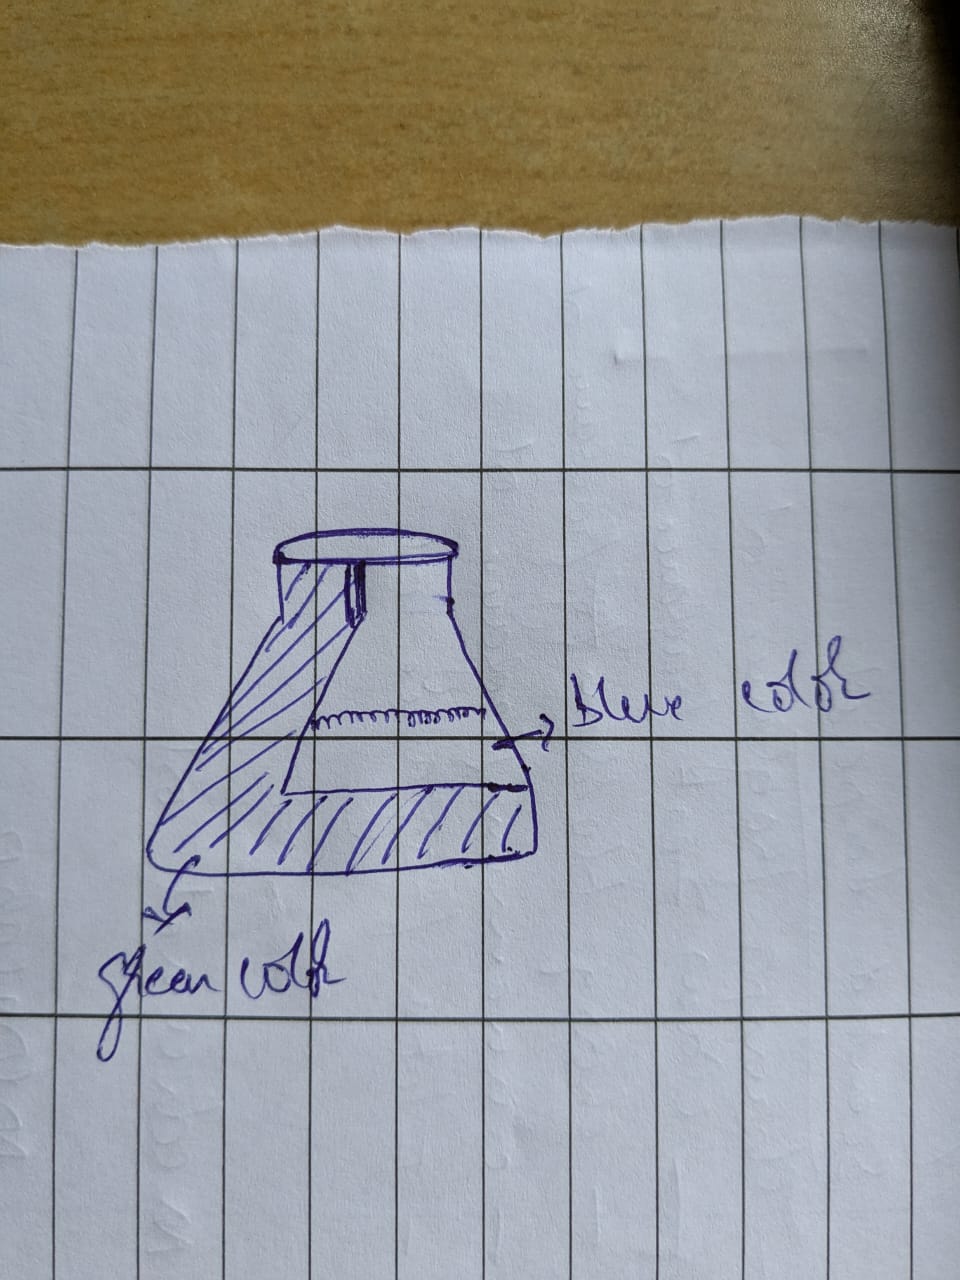 Blue color
green color